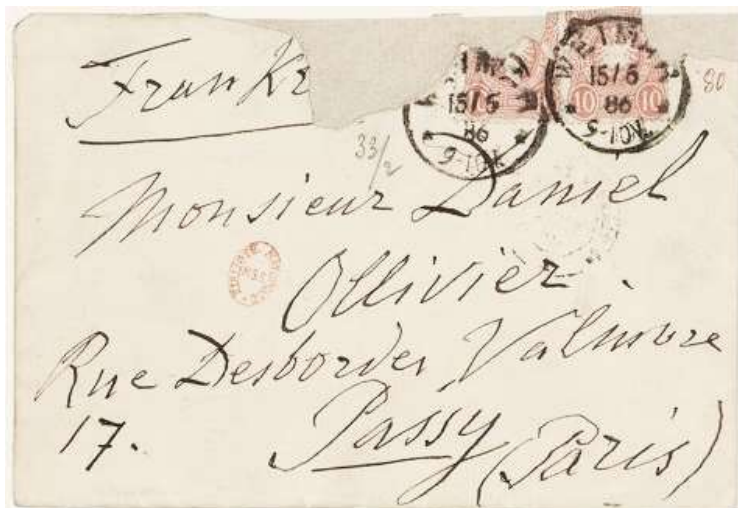 Frankr
WEIMAR
15/5
86
*5-10N*
10
10
15/5
86
80
33/2
Monsieur Daniel
Ollivier.
Rue Desbordes Valmore
17. Passy
(Paris)